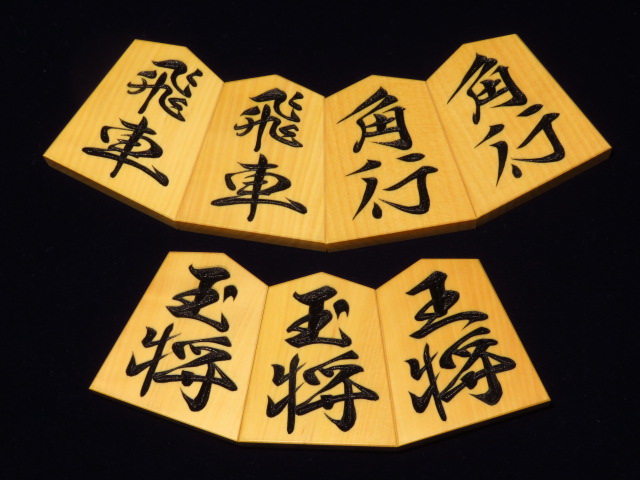 飛車
飛車
角行
角行
玉将
玉将
王将